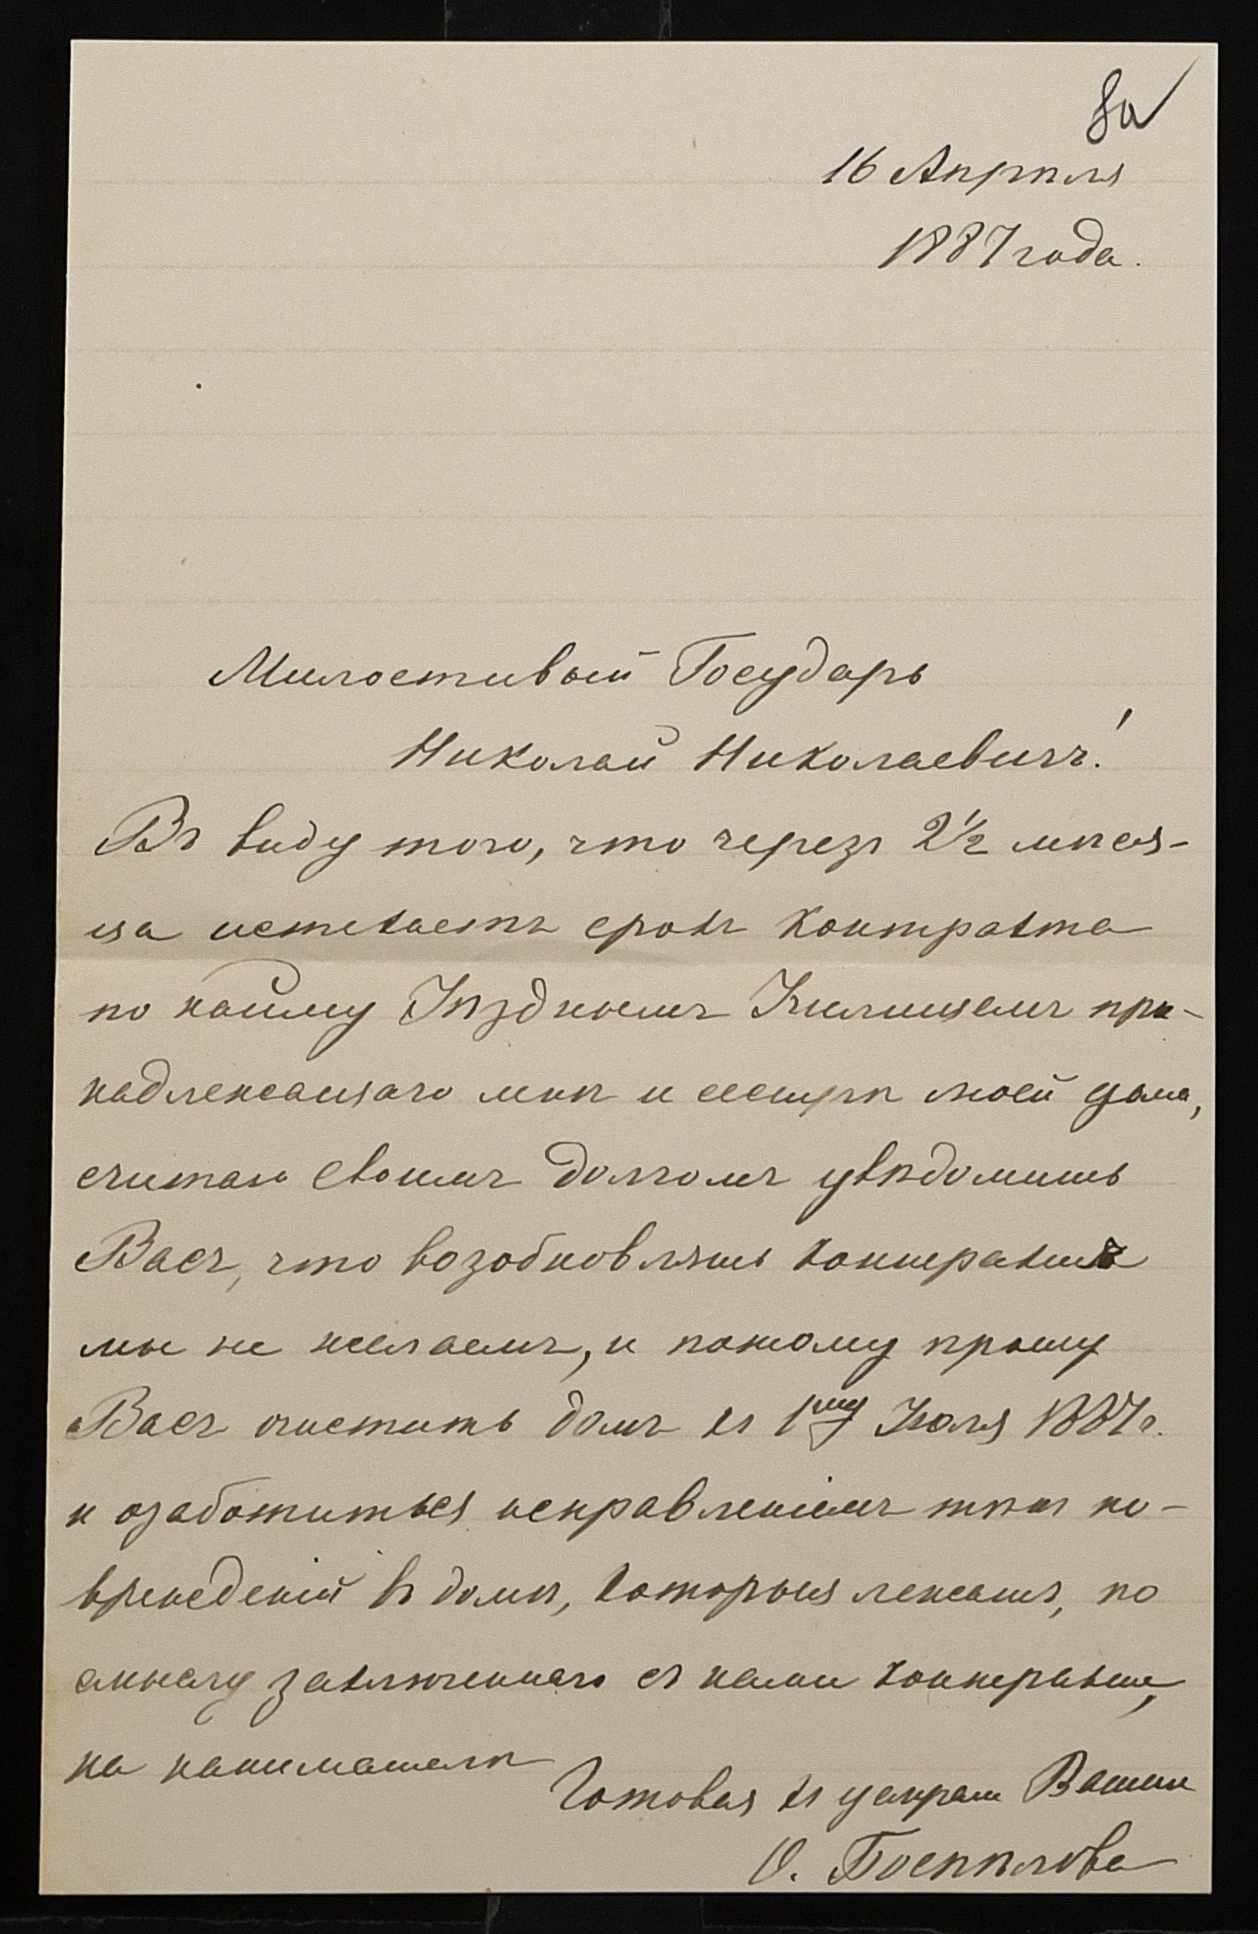 8а
16 Апрѣля
1887 года.
Милостивый Государь
Николай Николаевичъ!
Въ виду того, что черезъ 2½ мѣся-
ца истекаетъ срокъ контракта
по найму Уѣзднымъ Училищемъ при-
надлежащаго мнѣ и сестрѣ моей дома,
считаю своимъ долгомъ увѣдомить
Васъ, что возобновлять контракта
мы не желаемъ, и потому прошу
Васъ очистить домъ къ 1му Июля 1887 г.
и озаботиться исправленіемъ тѣхъ по-
врежденій въ домѣ, которыя лежатъ, по
смыслу заключеннаго съ нами контракта,
на нанимателѣ
Готовая къ услугам Вашим
О.